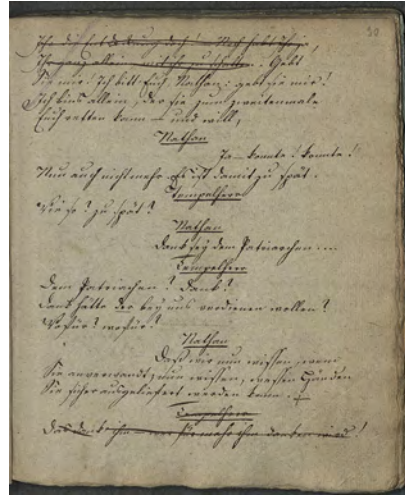 30
Sie mir! Ich bitt Euch, Nathan: gebt sie mir!
Ich bins allein, der sie zum zweitenmale
Euch retten kann — und will,
Nathan
Ja — konnte! konnte!
Nun auch nicht mehr. Es ist damit zu spät.
Tempelherr
Wie so? zu spät?
Nathan
Dank sey dem Patriarchen ...
Tempelherr
Dem Patriarchen? Dank?
Dank hätte der bey uns verdienen wollen?
Wofür? wofür?
Nathan
Daß wir nun wissen, wem
Sie anverwandt; nun wissen, wessen Händen
Sie sicher ausgeliefert werden kann.
Tempelherr
Das dank ihm — wer für mehr ihm danken wird!